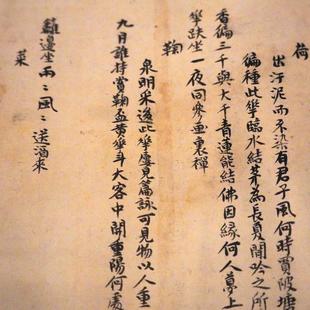 荷
出汙泥而不染有君子風何時買陂塘
徧種此華臨水結茅為長夏閒吟之所
香徧三千與大千青蓮能結佛因緣何人夢上
華趺坐一夜同參畫裏禪
鞠
泉明采後此華屢見篇詠可見物以人重
九月誰持賞鞠盃黃華斗大客中開重陽何處
籬邊坐雨〻風〻送酒來
菜